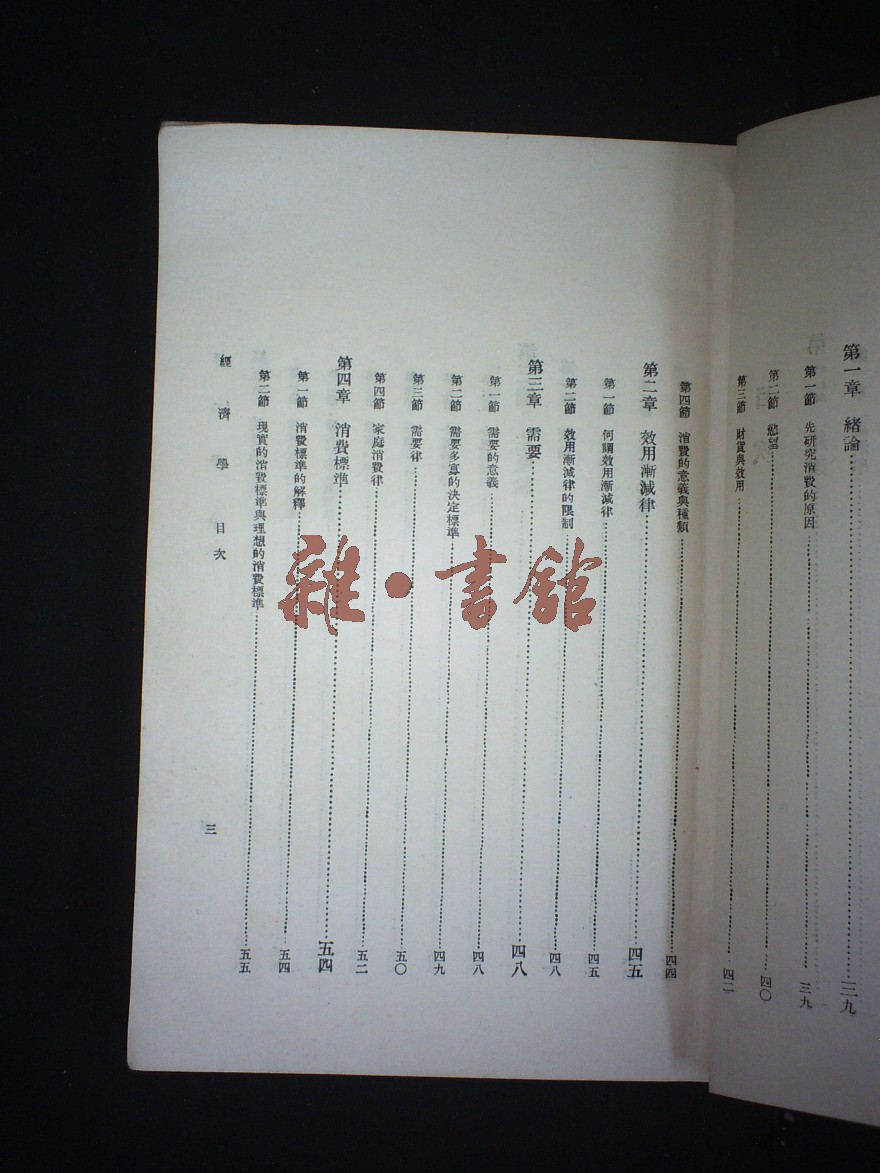 第一章 緒論 三九
第一節 先研究消費的原因 三九
第二節 慾望 四〇
第三節 財貨與效用 四二
第四節 消費的意義與種類 四四
第二章 效用漸減律 四五
第一節 何謂效用漸減律 四五
第二節 效用漸減律的限制 四八
第三章 需要 四八
第一節 需要的意義 四八
第二節 需要多寡的決定標準 四九
第三節 需要律 五〇
第四節 家庭消費律 五二
第四章 消費標準 五四
第一節 消費標準的解釋 五四
第二節 現實的消費標準與理想的消費標準 五五
經濟學 目次 三
雜·書館